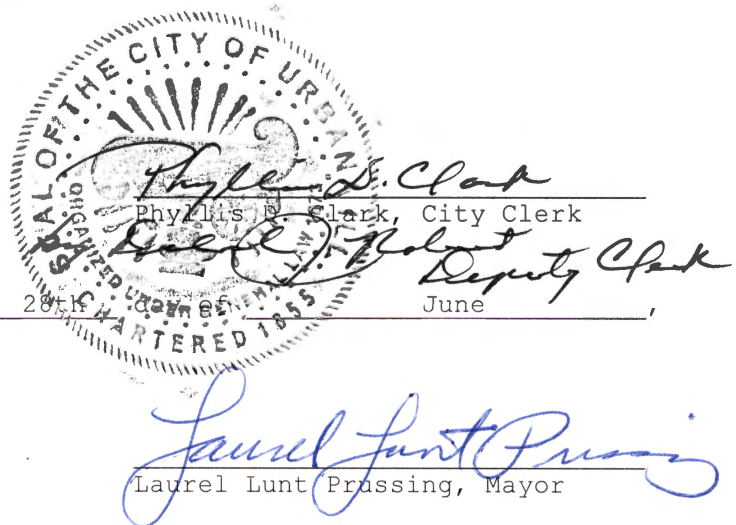 SEAL OF THE CITY OF URBANA, ILL.
ORGANIZED UNDER GENERAL LAW
CHARTERED 1855
Phyllis D. Clark
Phyllis D. Clark, City Clerk
By Robert
Deputy Clerk
28th day of June,
Laurel Lunt Prussing
Laurel Lunt Prussing, Mayor